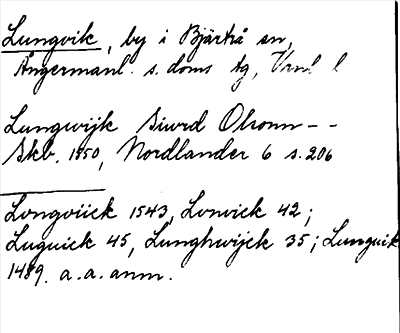 Lungvik, by i Bjärtrå sn,
Ångermanl. s. doms tg, Vrnl l
Lungwijk Siwrd Olsonn - -
Skb. 1550, Nordlander 6 s. 206
Longviick 1543, Lonvick 42;
Luguick 45, Lunghwijck 35; Lunguik
1489. a. a. anm.